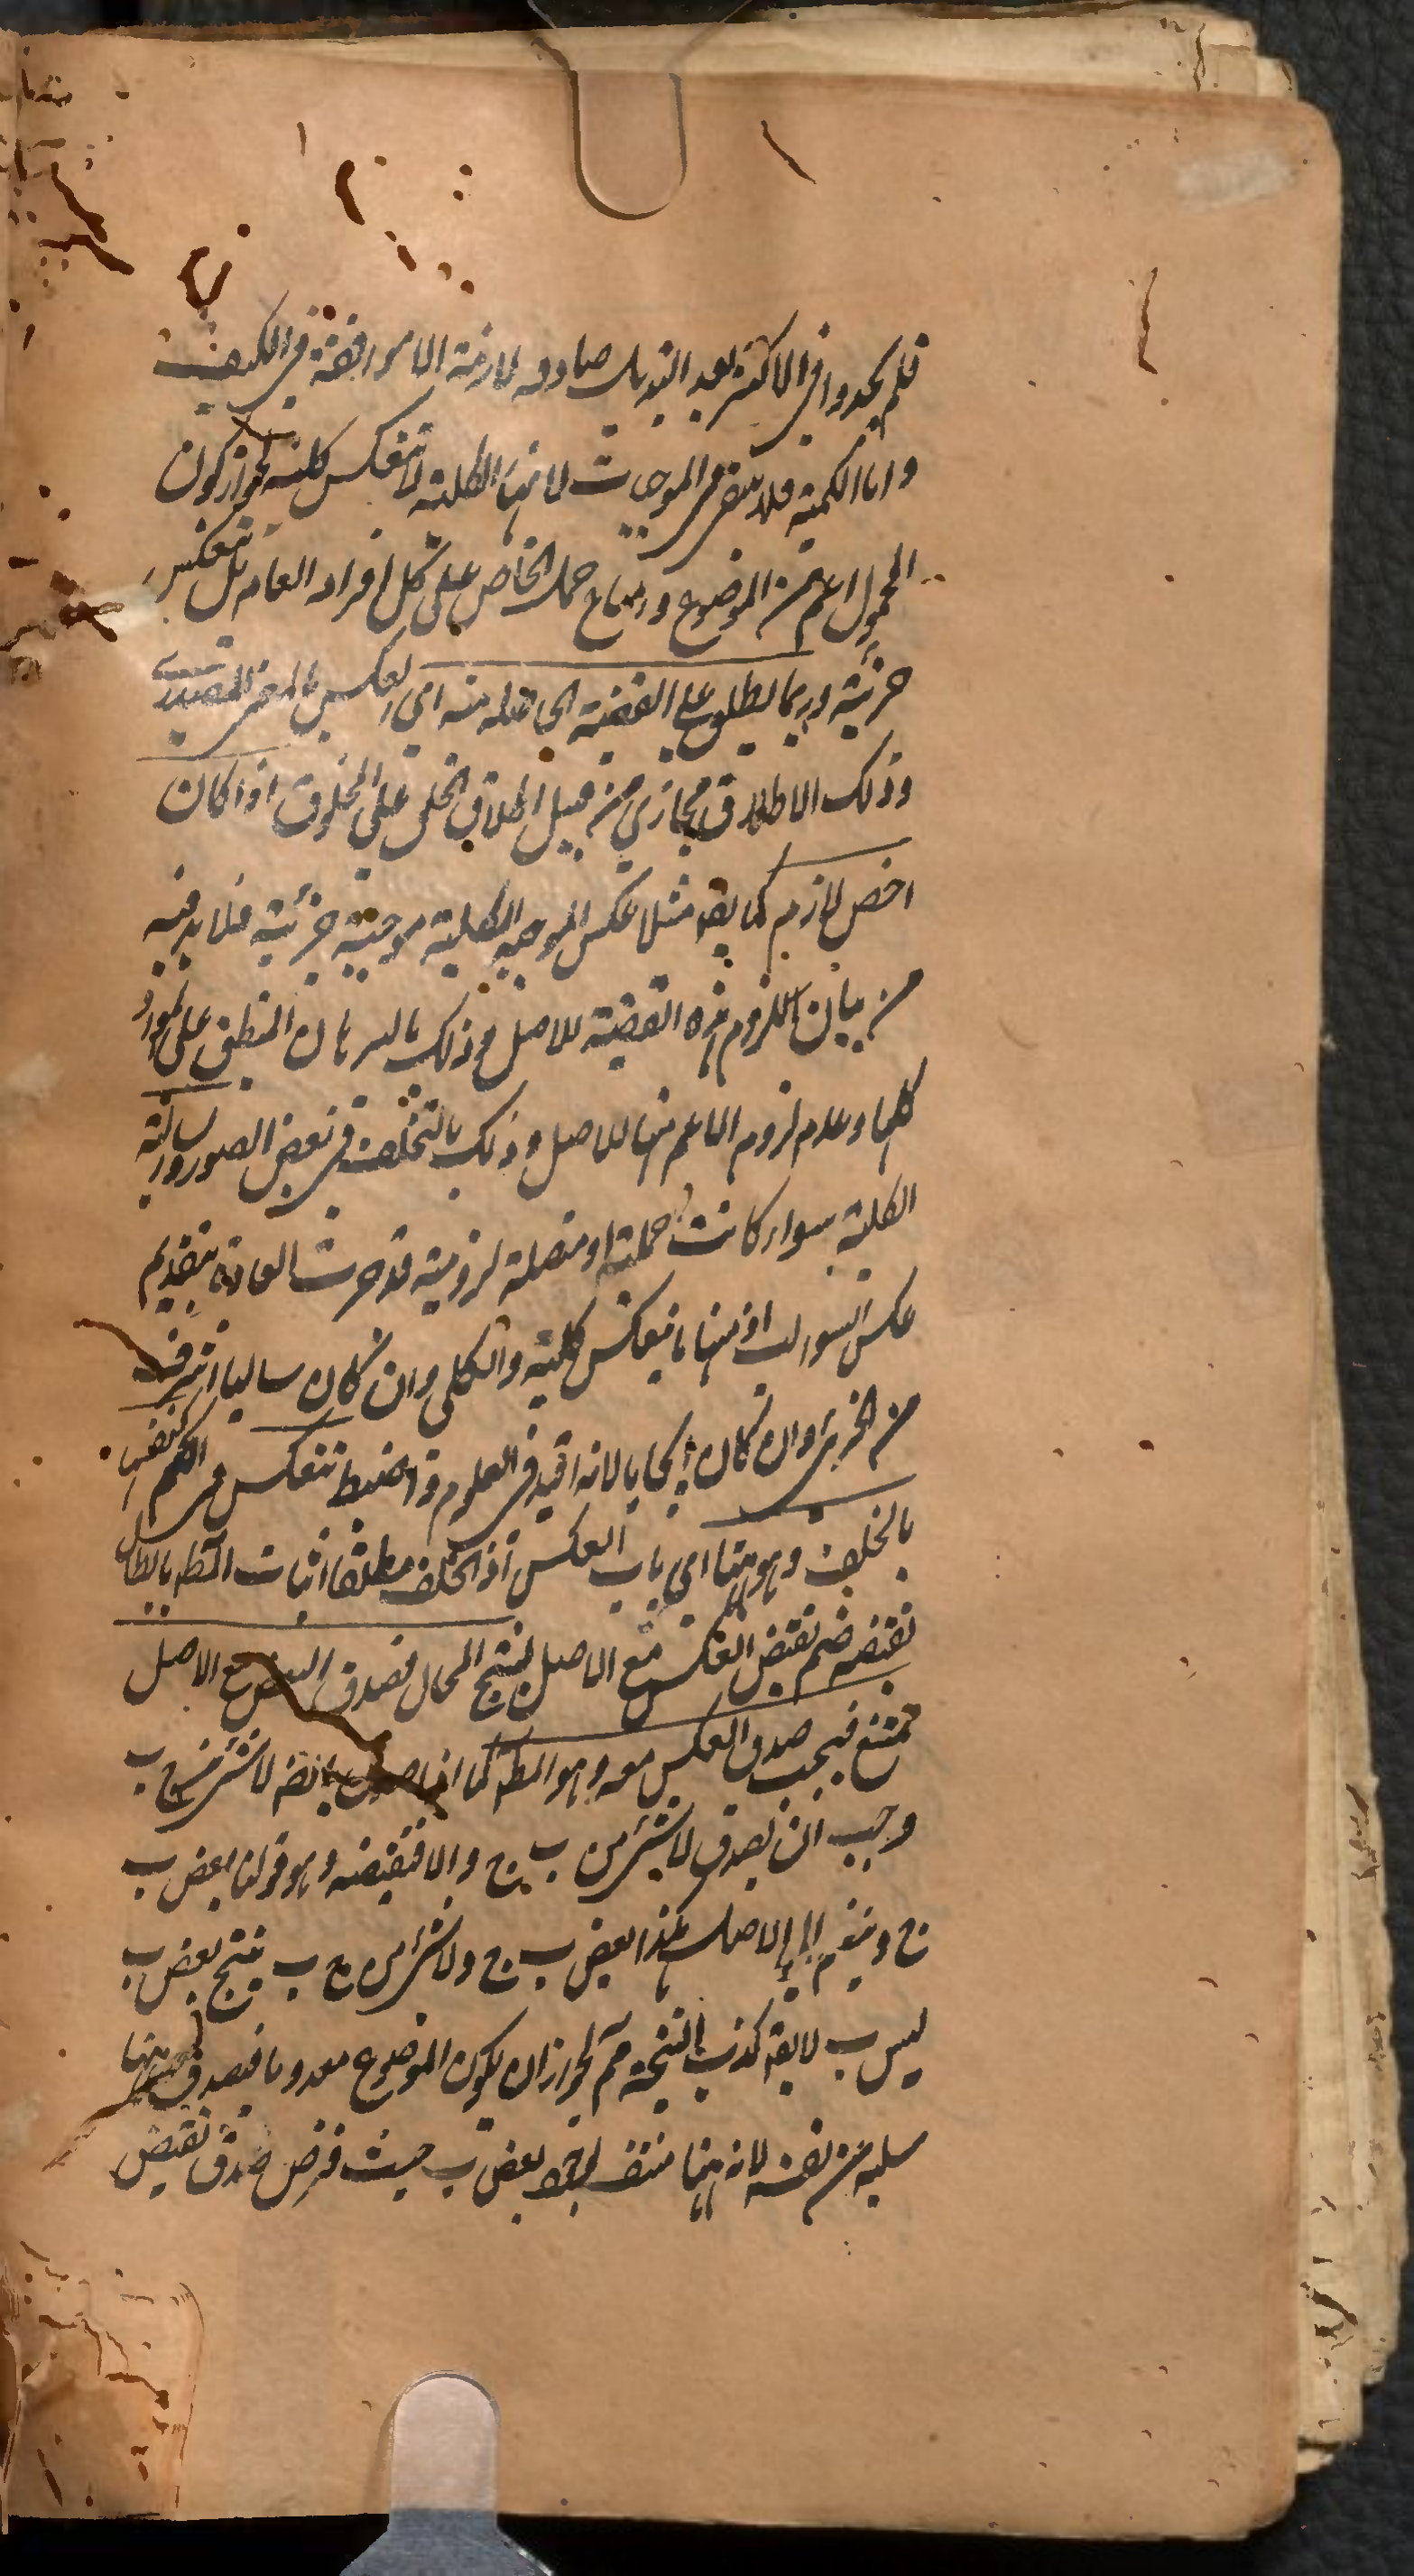 فلم يجدوا في الاكثر بعد التبديل صادقه لازمة الا موافقة في الكيف
واما الكمية فلا تبقى في الموجبات لانها الكلية لا تنعكس كلية لجواز كون
المحمول اعم من الموضوع وامتناع حمل الخاص على كل افراد العام بل تنعكس
جزئية وربما يطلق على القضية الحاصله منه اي العكس بالمعنى المصدري
وذلك الاطلاق مجازي من قبيل اطلاق الخلق على المخلوق اذا كان
اخص لازم كما يقه مثلا عكس الموجبه الكلية موجبة جزئية فلا بد فيه
من بيان لزوم هذه القضية للاصل وذلك بالبرهان المنطبق على المواد
كلها وعدم لزوم الاعم منها للاصل وذلك بالتخلف في بعض الصور والسالبة
الكلية سواء كانت حملية او متصلة لزومية قد جرت العادة بتقديم
عكس السوالب اذ منها ما ينعكس كلية والكلي وان كان سالبا اشرف
من الجزئي وان كان ايجابا لانه افيد في العلوم واضبط تنعكس في الكم كنفسها
بالخلف وهو ههنا اي باب العكس اذ الخلف مطلقا اثبات المط بابطال
نقيضه ضم نقيض العكس مع الاصل لينتج المحال فصدق النقيض مع الاصل
ممتنع فيجب صدق العكس معه وهو المط كما اذا صدق لا شئ من ج ب
وجب ان يصدق لا شئ من ب ج والا فنقيضه وهو قولنا بعض ب
ج وينضم الى الاصل هكذا بعض ب ج ولا شئ من ج ب ينتج بعض ب
ليس ب لا يقه كذب النتيجة مم لجواز ان يكون الموضوع معدوما فيصدق
سلبه من نفسه لانه ههنا منتف لوجود بعض ب حيث فرض صدق نقيض